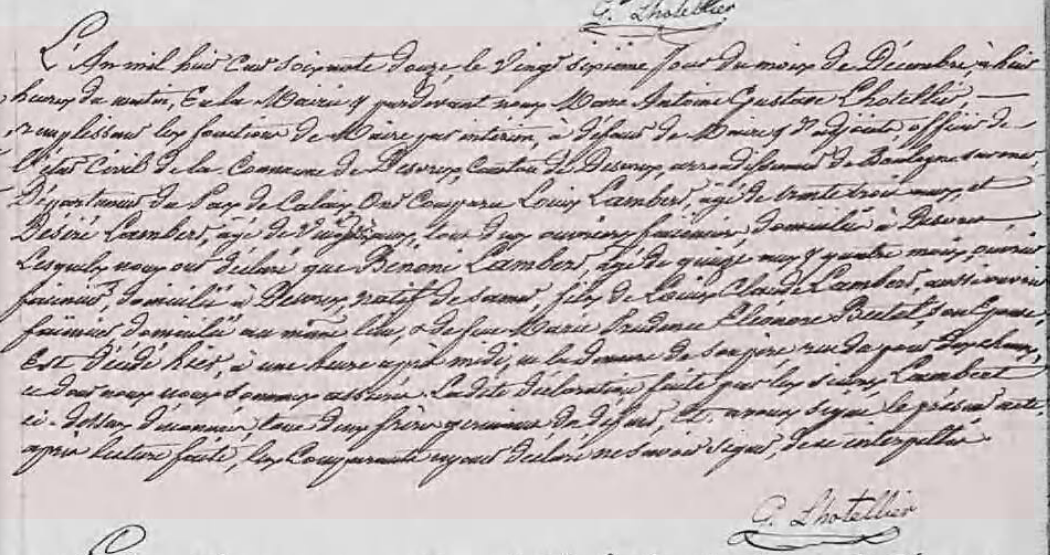 G. Lhotellier
L'An mil huit Cent soixante douze, le Vingt sixième Jour du mois de Décembre, à huit
heures du matin, En la Mairie & pardevant nous Marie Antoine Gustave Lhotellier,
remplissant les fonctions de Maire par intérim, à défaut de Maire & d'adjoints, officier de
l'état Civil de la Commune de Desvres, Canton de Desvres, arrondissement de Boulogne sur mer,
Département du Pas de Calais Ont Comparu Louis Lambert, âgé de trente trois ans, et
Désiré Lambert, âgé de Vingt ans, tous deux ouvriers faïenciers, domiciliés à Desvres
Lesquels nous ont déclaré que Benoni Lambert, âgé de quinze ans & quatre mois, ouvrier
faïencier, domicilié à Desvres natif de Samer, fils de Louis Claude Lambert, aussi ouvrier
faïencier, domicilié au même lieu, & de feue Marie Prudence Éléonore Bertel, son Épouse,
Est décédé hier, à une heure après midi, en la demeure de son père rue du
ce dont nous nous sommes assuré. La dite déclaration faite par les sieurs Lambert
ci-dessus dénommés, tous deux frères germains du défunt, Et avons signé le présent acte,
après lecture faite, les Comparants ayant déclaré ne savoir signer, de ce interpellés
G. Lhotellier